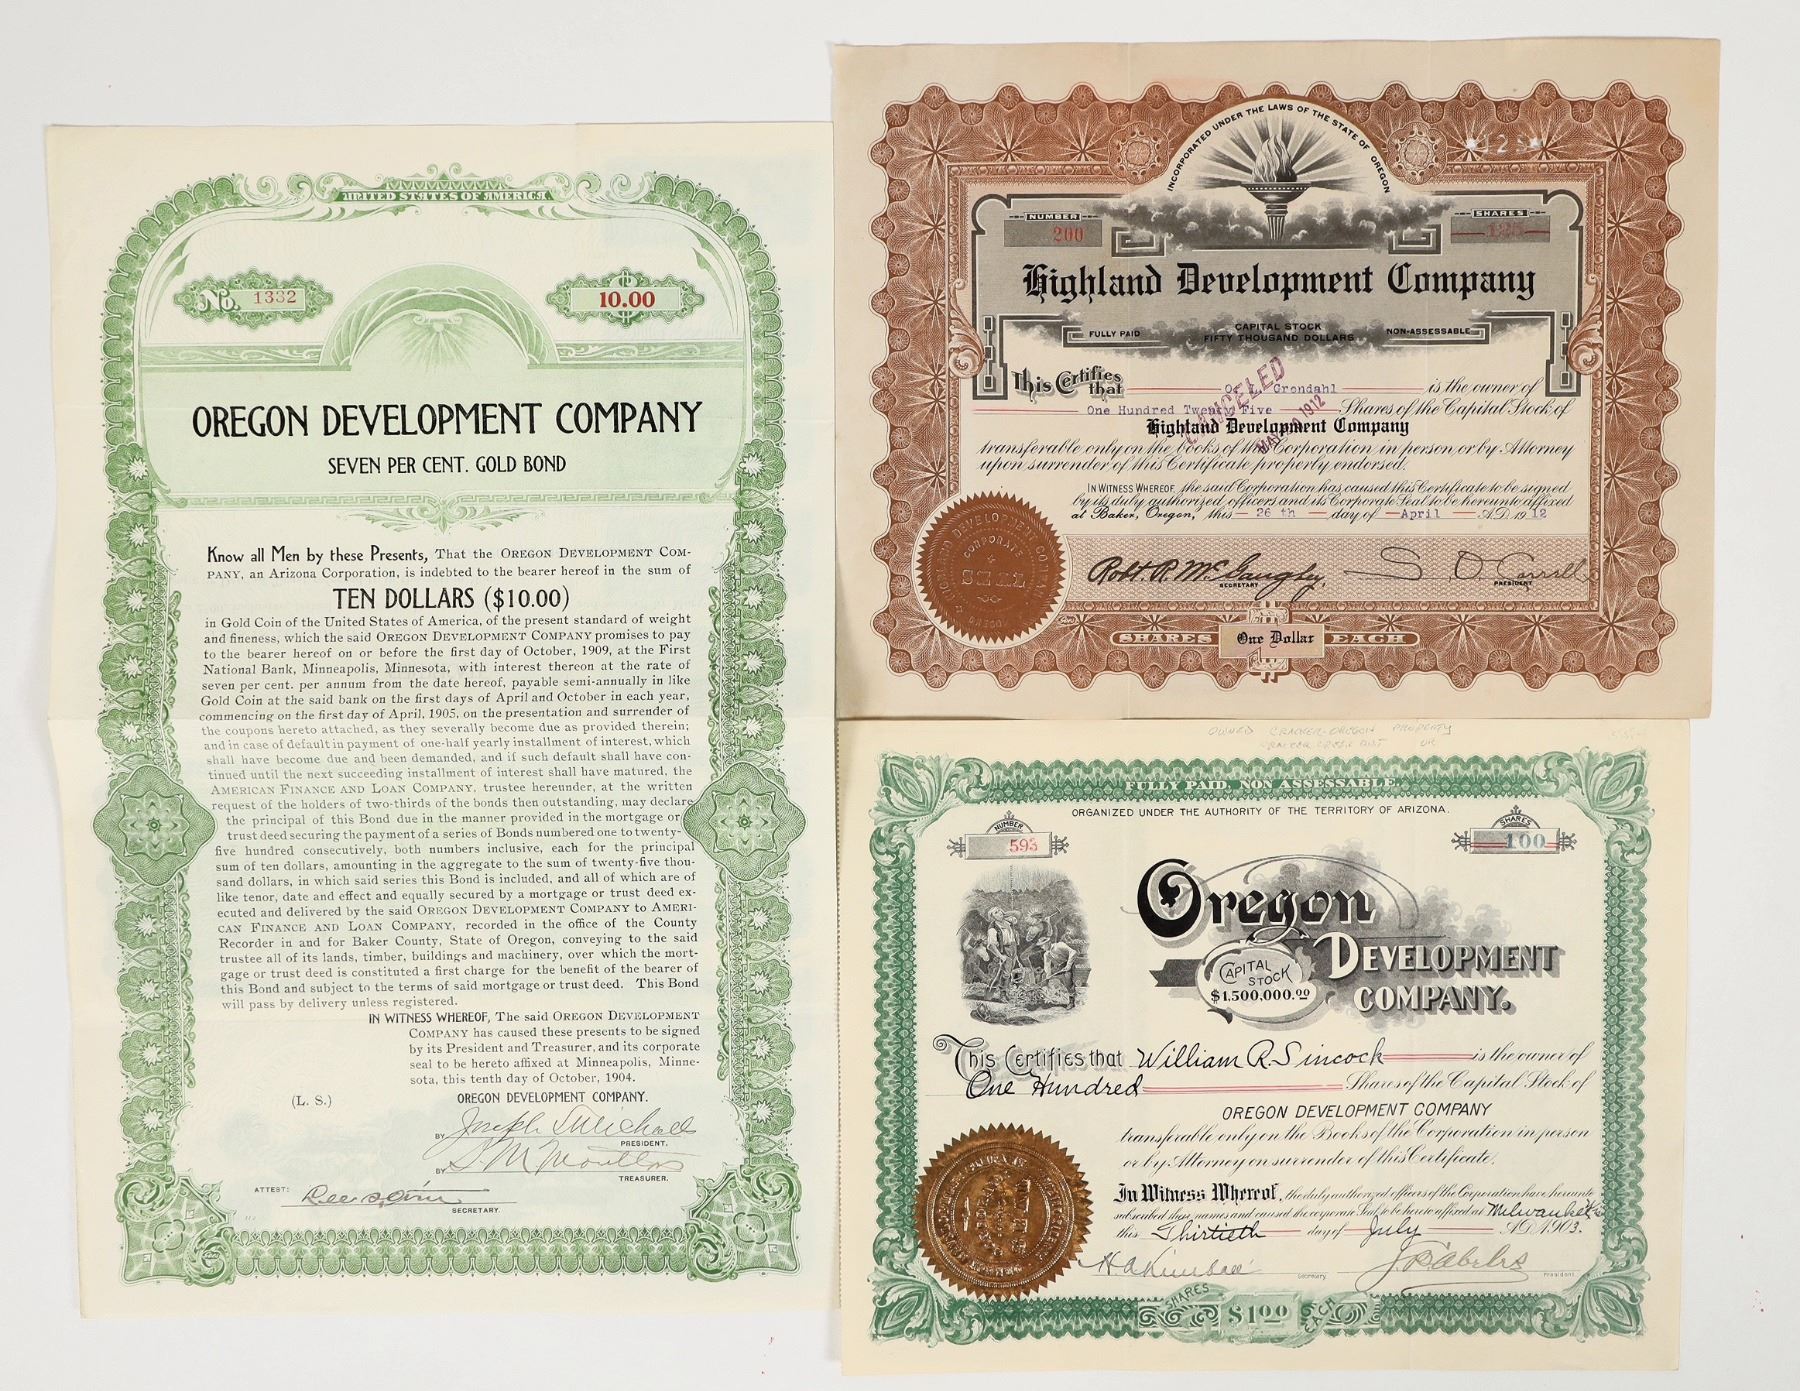 UNITED STATES OF AMERICA
No. 1332
10.00
OREGON DEVELOPMENT COMPANY
SEVEN PER CENT. GOLD BOND
Know all Men by these Presents, That the OREGON DEVELOPMENT COM-
PANY, an Arizona Corporation, is indebted to the bearer hereof in the sum of
TEN DOLLARS ($10.00)
in Gold Coin of the United States of America, of the present standard of weight
and fineness, which the said OREGON DEVELOPMENT COMPANY promises to pay
to the bearer hereof on or before the first day of October, 1909, at the First
National Bank, Minneapolis, Minnesota, with interest thereon at the rate of
seven per cent. per annum from the date hereof, payable semi-annually in like
Gold Coin at the said bank on the first days of April and October in each year,
commencing on the first day of April, 1905, on the presentation and surrender of
the coupons hereto attached, as they severally become due as provided therein;
and in case of default in payment of one-half yearly installment of interest, which
shall have become due and been demanded, and if such default shall have con-
tinued until the next succeeding installment of interest shall have matured, the
AMERICAN FINANCE AND LOAN COMPANY, trustee hereunder, at the written
request of the holders of two-thirds of the bonds then outstanding, may declare
the principal of this Bond due in the manner provided in the mortgage or
trust deed securing the payment of a series of Bonds numbered one to twenty-
five hundred consecutively, both numbers inclusive, each for the principal
sum of ten dollars, amounting in the aggregate to the sum of twenty-five thou-
sand dollars, in which said series this Bond is included, and all of which are of
like tenor, date and effect and equally secured by a mortgage or trust deed ex-
ecuted and delivered by the said OREGON DEVELOPMENT COMPANY to AMERI-
CAN FINANCE AND LOAN COMPANY, recorded in the office of the County
Recorder in and for Baker County, State of Oregon, conveying to the said
trustee all of its lands, timber, buildings and machinery, over which the mort-
gage or trust deed is constituted a first charge for the benefit of the bearer of
this Bond and subject to the terms of said mortgage or trust deed. This Bond
will pass by delivery unless registered.
IN WITNESS WHEREOF, The said OREGON DEVELOPMENT
COMPANY has caused these presents to be signed
by its President and Treasurer, and its corporate
seal to be hereto affixed at Minneapolis, Minne-
sota, this tenth day of October, 1904.
(L. S.)
OREGON DEVELOPMENT COMPANY.
BY Joseph S Michaels
PRESIDENT.
BY
TREASURER.
ATTEST:
SECRETARY.
INCORPORATED UNDER THE LAWS OF THE STATE OF OREGON
*125*
NUMBER
200
SHARES
125
Highland Development Company
FULLY PAID
CAPITAL STOCK
FIFTY THOUSAND DOLLARS
NON-ASSESSABLE
This Certifies that O. Grondahl is the owner of
One Hundred Twenty Five Shares of the Capital Stock of
Highland Development Company
CANCELED
1912
transferable only on the books of the Corporation in person or by Attorney
upon surrender of this Certificate properly endorsed.
IN WITNESS WHEREOF, the said Corporation has caused this Certificate to be signed
by its duly authorized officers and its Corporate Seal to be hereunto affixed
at Baker, Oregon, this 26 th day of April A.D. 1912
HIGHLAND DEVELOPMENT COMPANY
CORPORATE
SEAL
OREGON
Robt. R. McGaughey,
SECRETARY
S. O. Correll
PRESIDENT
SHARES One Dollar EACH
OWNED CRACKER-OREGON PROPERTY
FULLY PAID. NON ASSESSABLE.
ORGANIZED UNDER THE AUTHORITY OF THE TERRITORY OF ARIZONA.
NUMBER
593
SHARES
100
Oregon
DEVELOPMENT
COMPANY.
CAPITAL
STOCK
$1,500,000.00
This Certifies that William R. Sincock is the owner of
One Hundred Shares of the Capital Stock of
OREGON DEVELOPMENT COMPANY
transferable only on the Books of the Corporation in person
or by Attorney on surrender of this Certificate.
In Witness Whereof, the duly authorized officers of the Corporation have hereunto
subscribed these names and caused the corporate Seal to be hereto affixed at Milwaukee
this Thirtieth day of July A.D. 1903.
Secretary
President
SHARES $1.00 EACH